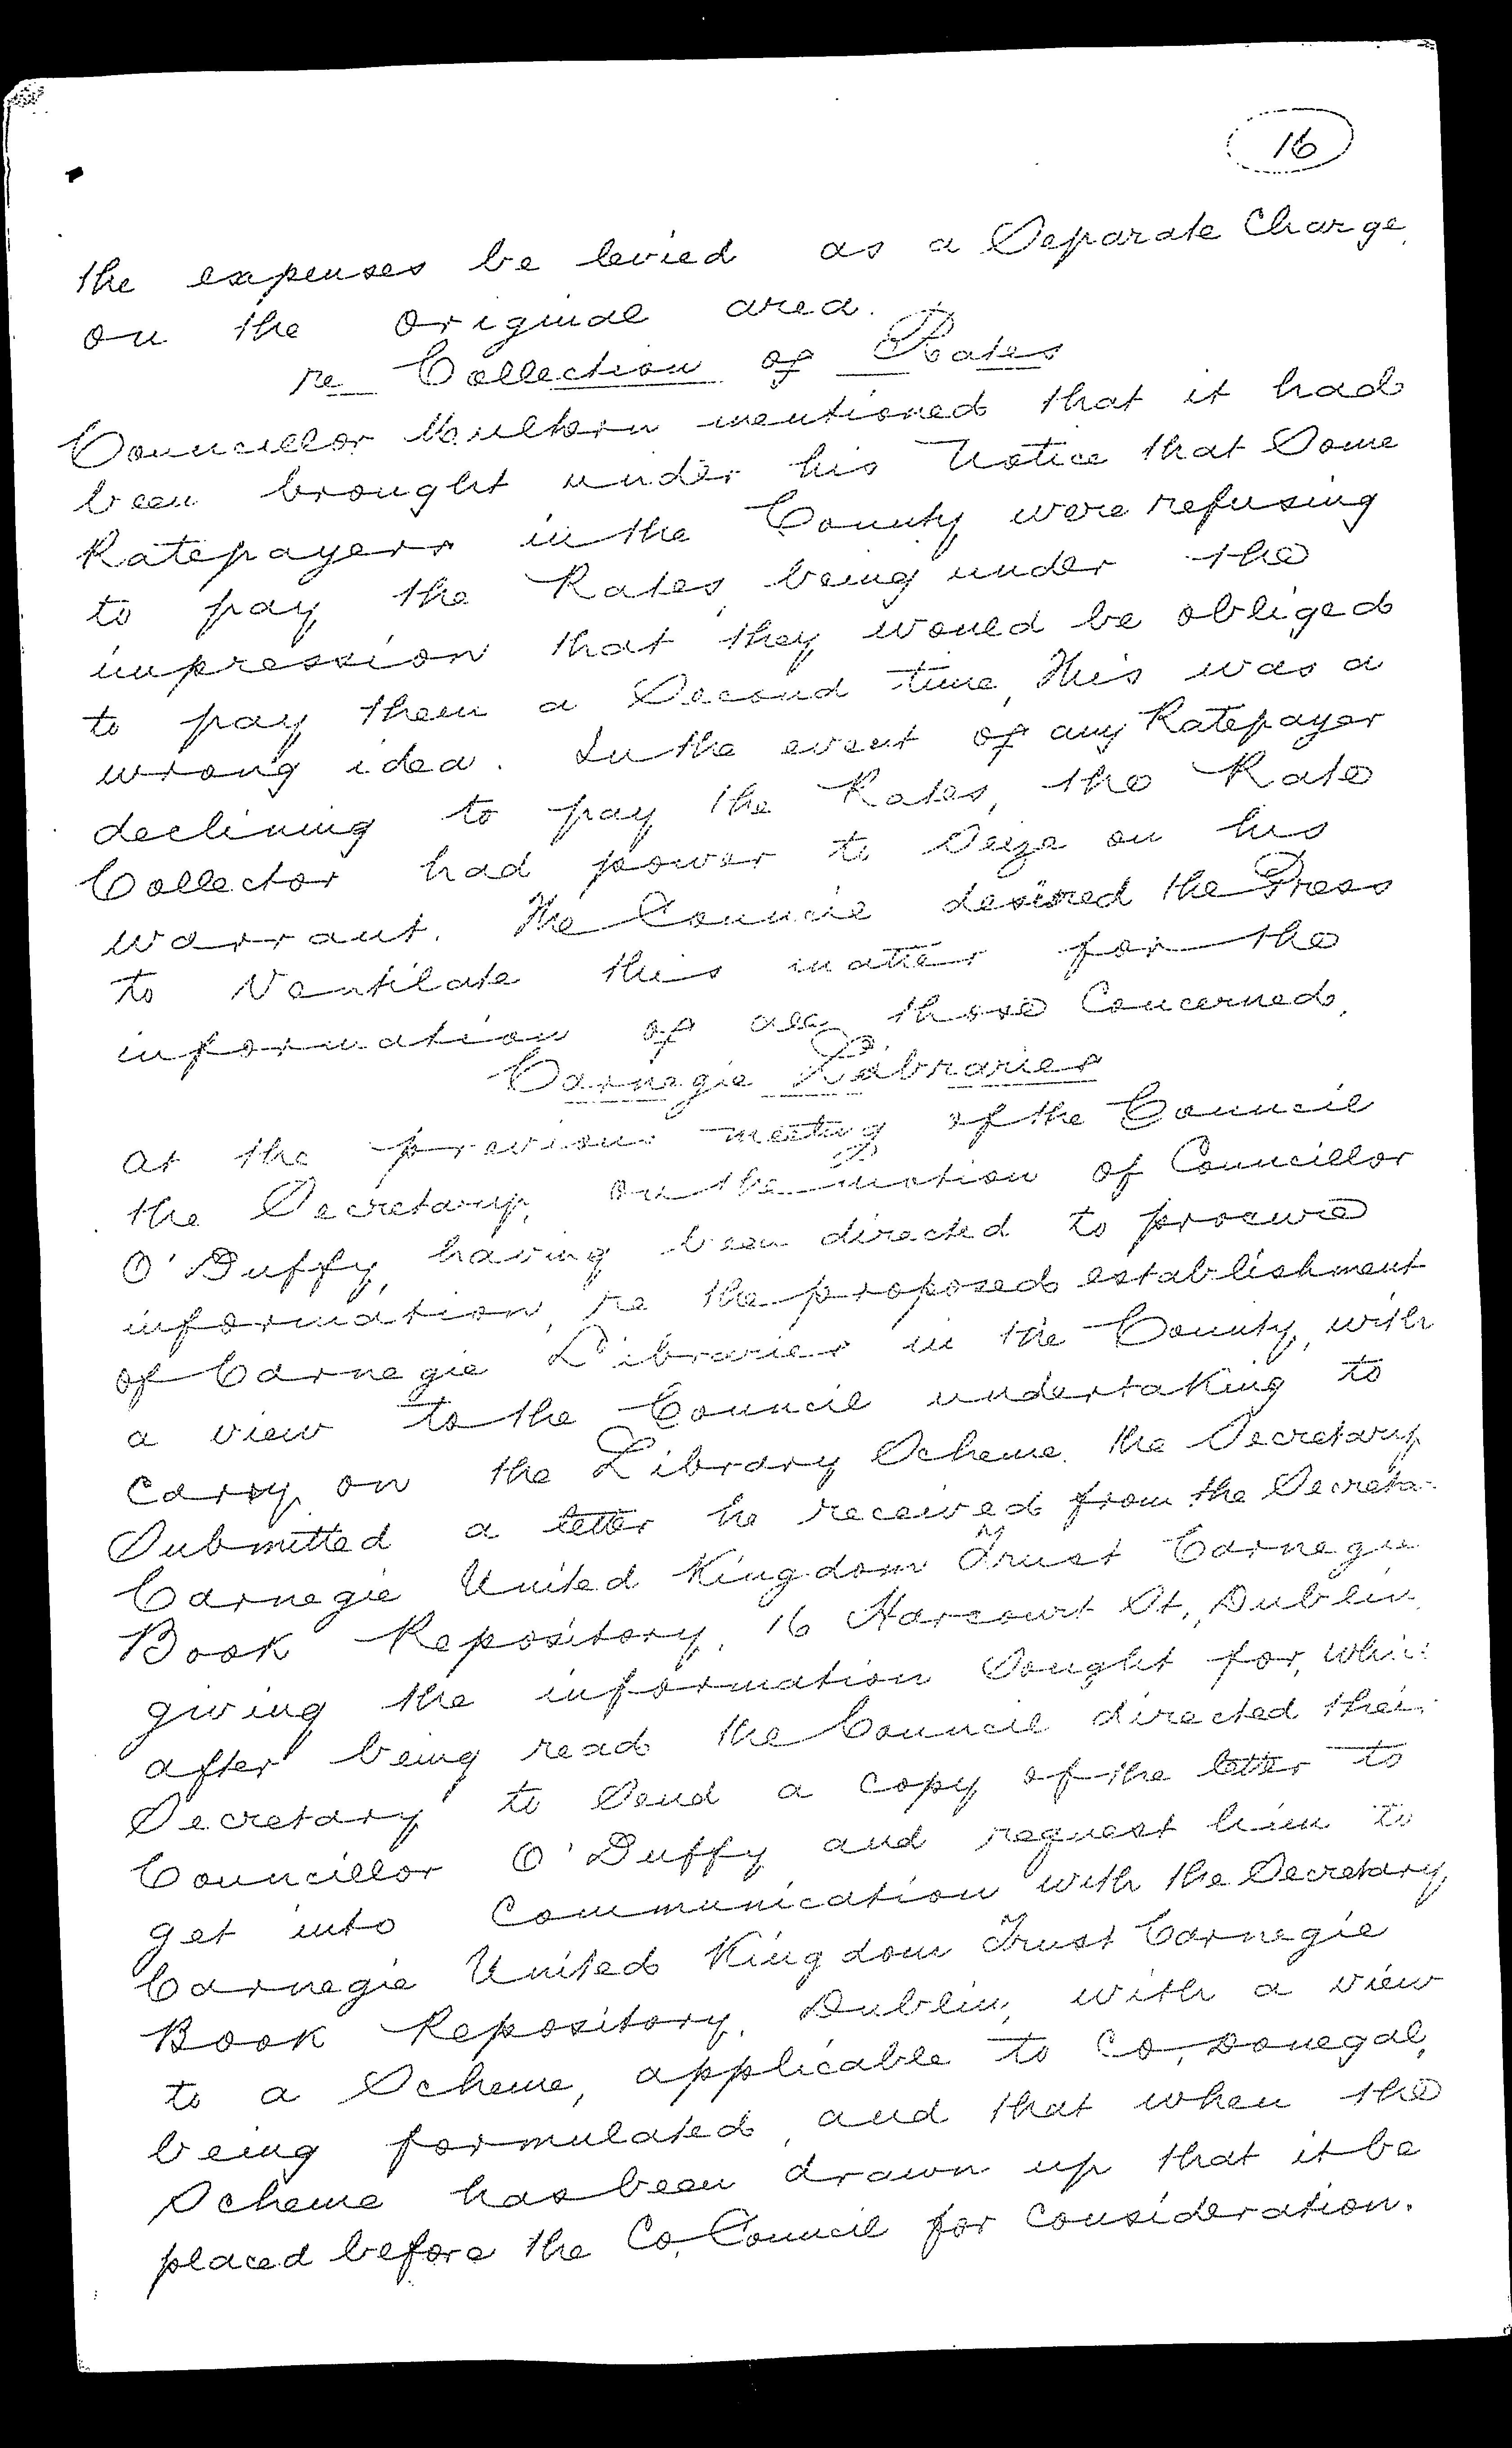 16
the expenses be levied as a Separate Charge,
on the original area.
re Collection of Rates
Councillor Mulhern mentioned that it had
been brought under his notice that Some
Ratepayers in the County were refusing
to pay the Rates, being under the
impression that they would be obliged
to pay them a Second time, This was a
wrong idea. In the event of any Ratepayer
declining to pay the Rates, the Rate
Collector had power to Seize on his
warrant. The Council desired the Press
to Ventilate this matter for the
information of all those Concerned.
Carnegie Libraries
At the previous meeting of the Council
the Secretary, on the motion of Councillor
O'Duffy, having been directed to procure
information, re the proposed establishment
of Carnegie Libraries in the County, with
a view to the Council undertaking to
carry on the Library Scheme. the Secretary
Submitted a letter he received from the Secreta
Carnegie United Kingdom Trust Carnegie
Book Repository, 16 Harcourt St., Dublin,
giving the information Sought for, whi
after being read the Council directed thei
Secretary to Send a copy of the letter to
Councillor O'Duffy and request him to
get into Communication with the Secretary,
Carnegie United Kingdom Trust Carnegie
Book Repository, Dublin, with a view
to a Scheme, applicable to Co, Donegal,
being formulated, and that when the
Scheme has been drawn up that it be
placed before the Co. Council for Consideration.